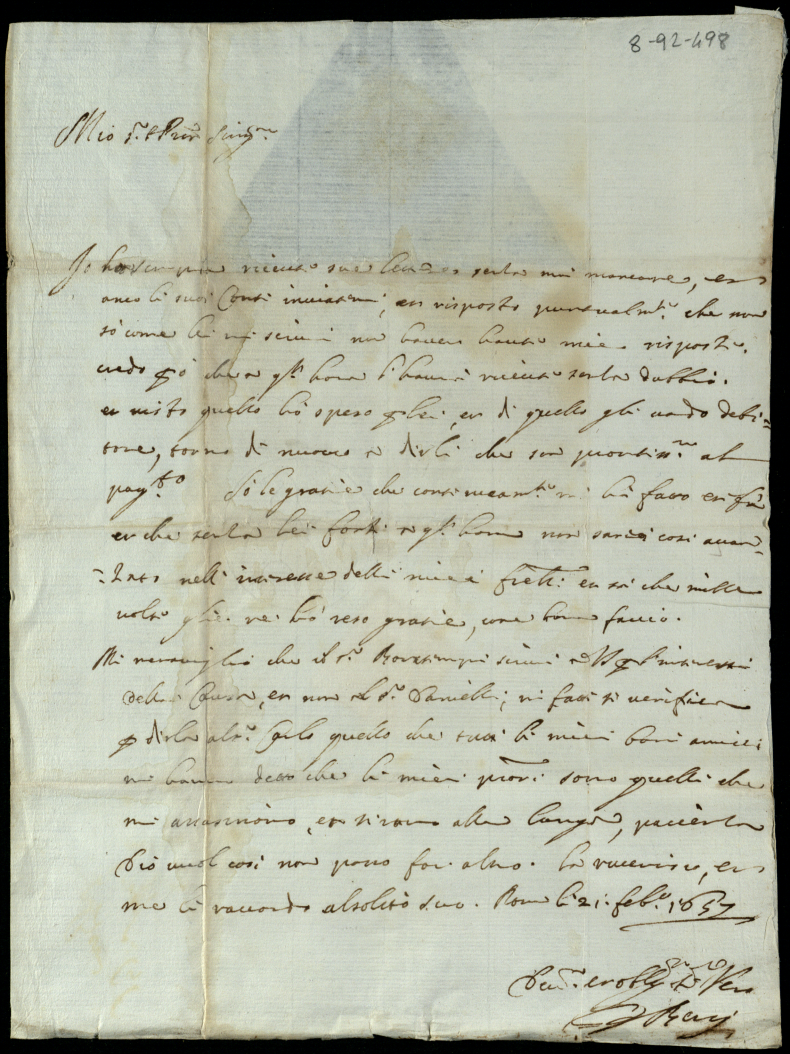 8-92-498
Mio s.r e Pron Sing.mo
Io ho sempre riceuto sue senza mai mancare, et
anco li suoi Conti inviatemi, et risposto puntualm.te che non
sò come lei mi scrivi non haver hauto mie risposte.
credo però che a q.st hora l'haverà riceute senza dubbio.
et visto quello hà speso per lei, et di quello gli vado debi=
tore, torno di nuovo a dirli che son prontiss.mo al
pag.to Sò le gratie che continuam.te mi hà fatto et fà
et che senza lei forsi a q.st hora non sarei così avan=
=zato nell' interesse delli miei et sà che mille
volte glie ne hò reso gratie, come hora faccio.
Mi meraviglio che il s.r scrivi a per l'interessi
della Causa, et non il s.r Danielli; mi fa si verifica
per dirla al s.r Carlo quello che tutti li miei boni amici
mi hanno detto che li miei sono quelli che
mi assassinono, et tirano alla longa, pacienza
Dio vuol così non posso far altro. La riverisco, et
me li raccordo al solito suo. Roma li 21. feb.o 1657